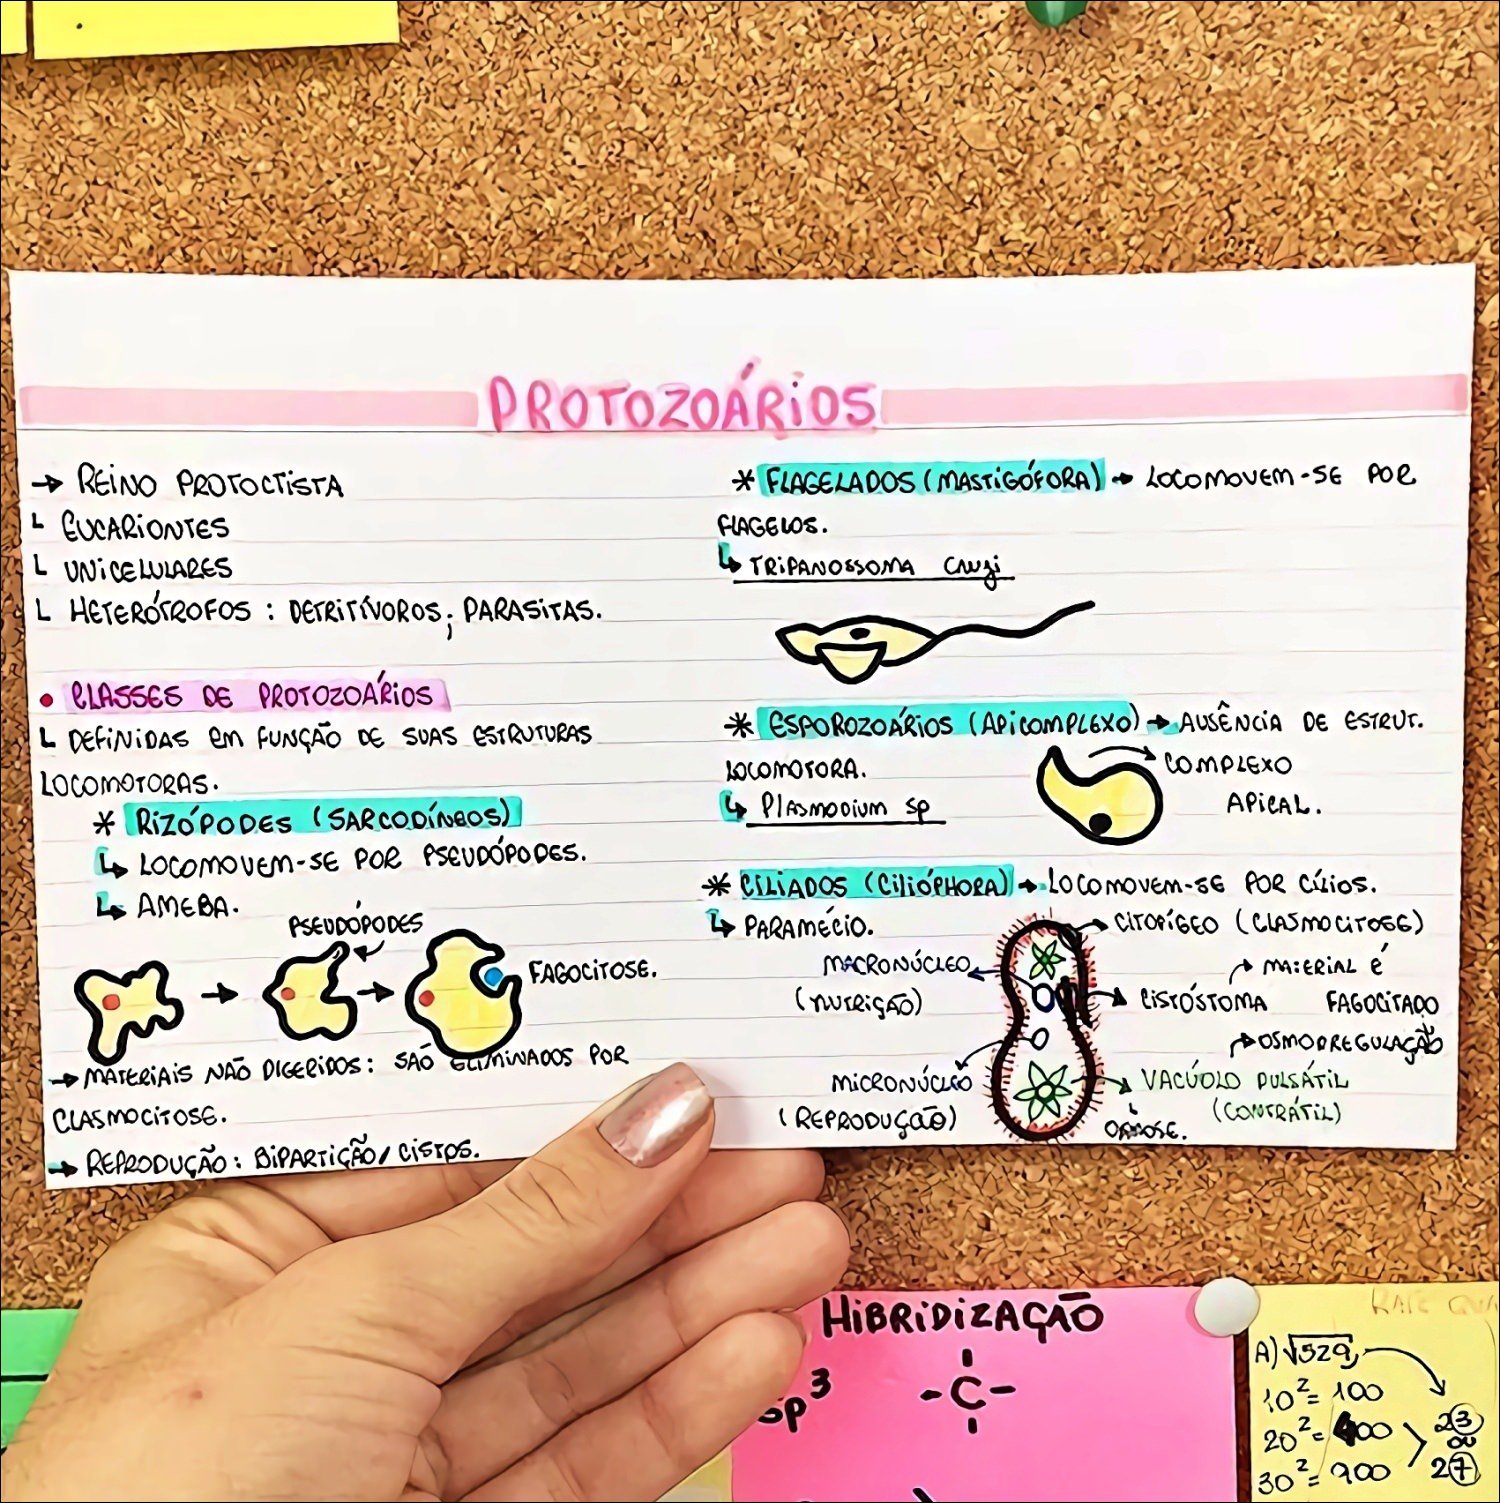 PROTOZOÁRIOS
→ REINO PROTOCTISTA
└ EUCARIONTES
└ UNICELULARES
└ HETERÓTROFOS : DETRITÍVOROS; PARASITAS.
• CLASSES DE PROTOZOÁRIOS
└ DEFINIDAS EM FUNÇÃO DE SUAS ESTRUTURAS
LOCOMOTORAS.
* RIZÓPODES (SARCODÍNEOS)
↳ LOCOMOVEM-SE POR PSEUDÓPODES.
↳ AMEBA.
PSEUDÓPODES
→ → FAGOCITOSE.
→ MATERIAIS NÃO DIGERIDOS: SÃO ELIMINADOS POR
CLASMOCITOSE.
→ REPRODUÇÃO: BIPARTIÇÃO/ CISTOS.
* FLAGELADOS (MASTIGÓFORA) → LOCOMOVEM-SE POR
FLAGELOS.
↳ TRIPANOSSOMA CRUZI
* ESPOROZOÁRIOS (APICOMPLEXO) → AUSÊNCIA DE ESTRUT.
LOCOMOTORA.
→ COMPLEXO
APICAL.
↳ PLASMODIUM SP
* CILIADOS (CILIÓPHORA) → LOCOMOVEM-SE POR CÍLIOS.
↳ PARAMÉCIO.
→ CITOPÍGEO (CLASMOCITOSE)
MACRONÚCLEO
(NUTRIÇÃO)
→ CISTÓSTOMA
→ MATERIAL É
FAGOCITADO
→ OSMORREGULAÇÃO
MICRONÚCLEO
(REPRODUÇÃO)
→ VACÚOLO PULSÁTIL
(CONTRÁTIL)
OSMOSE.
HIBRIDIZAÇÃO
Sp³
- C -
A) √529,
10² = 100
20² = 400
30² = 900
23
OU
27